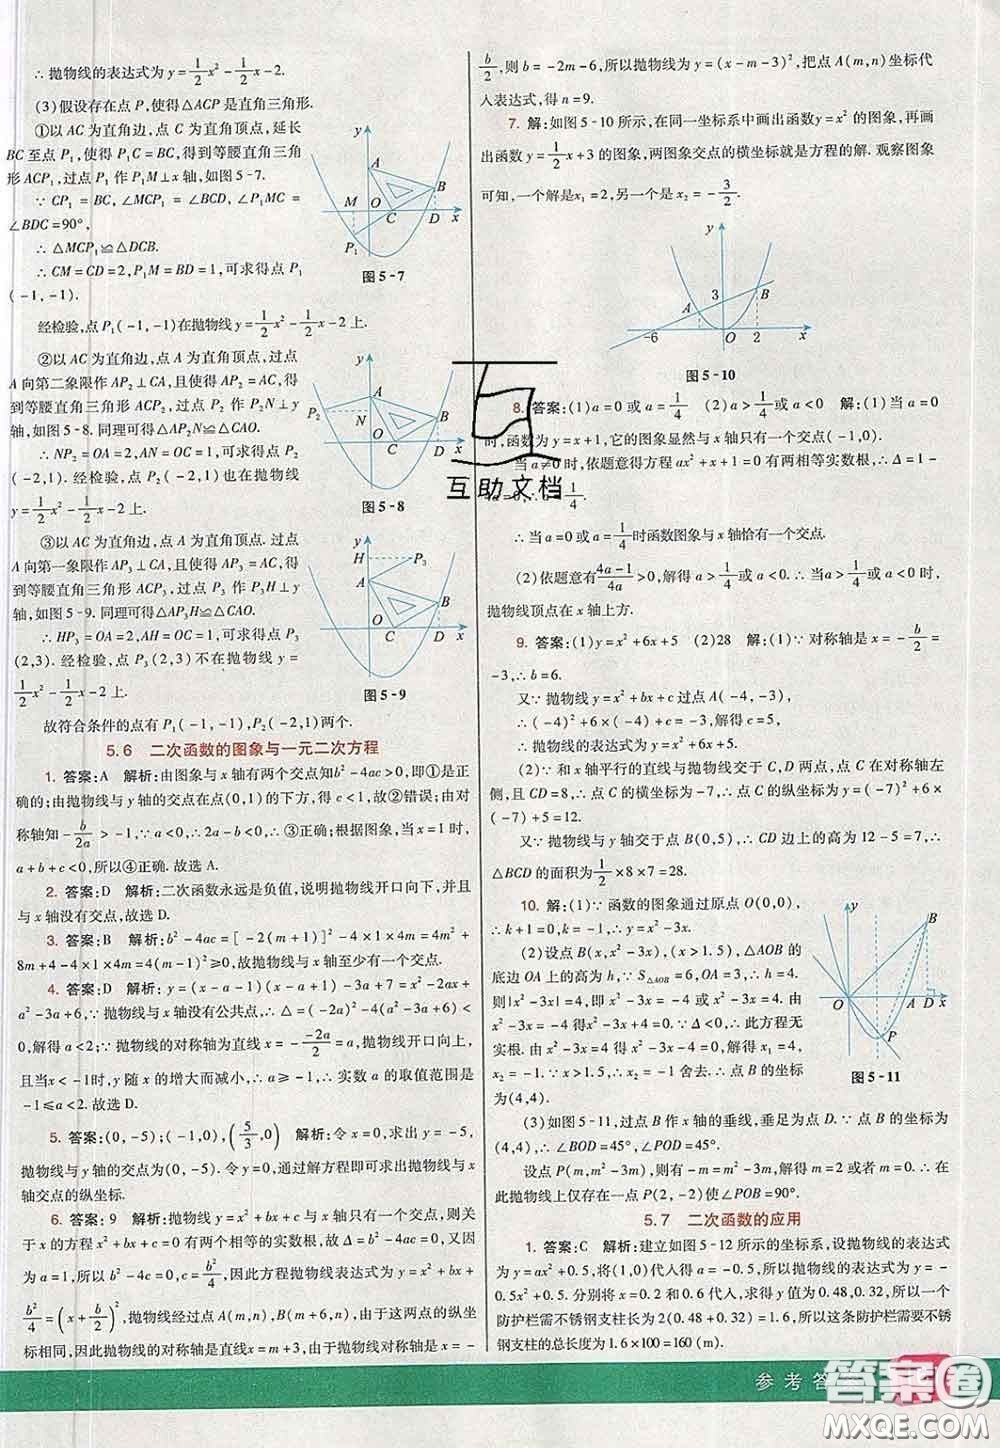 ∴ 抛物线的表达式为 y=1/2x²-1/2x-2.
(3)假设存在点 P,使得△ACP 是直角三角形.
①以 AC 为直角边,点 C 为直角顶点,延长
BC 至点 P₁,使得 P₁C=BC,得到等腰直角三角
形 ACP₁,过点 P₁ 作 P₁M⊥x 轴,如图 5-7.
∵ CP₁=BC, ∠MCP₁=∠BCD, ∠P₁MC=
∠BDC=90°,
∴ △MCP₁≌△DCB.
∴ CM=CD=2,P₁M=BD=1,可求得点 P₁
(-1,-1).
经检验,点 P₁(-1,-1)在抛物线 y=1/2x²-1/2x-2 上.
y
A
B
M
O
C
D
x
P₁
图 5-7
②以 AC 为直角边,点 A 为直角顶点,过点
A 向第二象限作 AP₂⊥CA,且使得 AP₂=AC,得
到等腰直角三角形 ACP₂,过点 P₂ 作 P₂N⊥y
轴,如图 5-8. 同理可得△AP₂N≌△CAO.
∴ NP₂=OA=2,AN=OC=1,可求得点 P₂
(-2,1). 经检验,点 P₂(-2,1)也在抛物线
y=1/2x²-1/2x-2 上.
y
A
P₂
N
B
O
C
D
x
图 5-8
③以 AC 为直角边,点 A 为直角顶点,过点
A 向第一象限作 AP₃⊥CA,且使得 AP₃=AC,得
到等腰直角三角形 ACP₃,过点 P₃ 作 P₃H⊥y
轴,如图 5-9. 同理可得△AP₃H≌△CAO.
∴ HP₃=OA=2,AH=OC=1,可求得点 P₃
(2,3). 经检验,点 P₃(2,3)不在抛物线 y=
1/2x²-1/2x-2 上.
y
H
P₃
A
B
O
C
D
x
图 5-9
故符合条件的点有 P₁(-1,-1),P₂(-2,1)两个.
5.6 二次函数的图象与一元二次方程
1. 答案:A 解析:由图象与 x 轴有两个交点知 b²-4ac>0,即①是正
确的;由抛物线与 y 轴的交点在点(0,1)的下方,得 c<1,故②错误;由对
称轴知-b/2a>-1,∵ a<0,∴ 2a-b<0,∴ ③正确;根据图象,当 x=1 时,
a+b+c<0,所以④正确. 故选 A.
2. 答案:D 解析:二次函数永远是负值,说明抛物线开口向下,并且
与 x 轴没有交点,故选 D.
3. 答案:B 解析:b²-4ac=[-2(m+1)]²-4×1×4m=4m²+
8m+4-4×1×4m=4(m-1)²≥0,故抛物线与 x 轴至少有一个交点.
4. 答案:D 解析:y=(x-a-1)(x-a+1)-3a+7=x²-2ax+
a²-3a+6,∵ 抛物线与 x 轴没有公共点,∴ Δ=(-2a)²-4(a²-3a+6)<
0,解得 a<2;∵ 抛物线的对称轴为直线 x=-(-2a)/2=a,抛物线开口向上,
且当 x<-1 时,y 随 x 的增大而减小,∴ a≥-1,∴ 实数 a 的取值范围是
-1≤a<2.
5. 答案:(0,-5);(-1,0),(5/3,0) 解析:令 x=0,求出 y=-5,
抛物线与 y 轴的交点为(0,-5). 令 y=0,通过解方程即可求出抛物线与 x
轴交点的纵坐标.
6. 答案:9 解析:抛物线 y=x²+bx+c 与 x 轴只有一个交点,则关
于 x 的一元二次方程有两个相等的实数根,所以 Δ=b²-4c=0. 又因
为 a=1,所以 b²-4c=0,c=b²/4,因此方程抛物线表达式为 y=x²+bx+
b²/4=(x+b/2)²,抛物线经过点 A(m,n),B(m+6,n),由于这两点的纵坐
标相同,因此抛物线的对称轴为直线 x=m+3,抛物线与 x 轴有 m+3=-
b/2,则 b=-2m-6,所以抛物线为 y=(x-m-3)²,把点 A(m,n)坐标代
入表达式,得 n=9.
7. 解:如图 5-10 所示,在同一坐标系中画出函数 y=x² 的图象,再画
出函数 y=1/2x+3 的图象,两图象交点的横坐标就是方程的解. 观察图象
可知,一个解是 x₁=2,另一个是 x₂=-3/2.
y
3
A
B
-6
O
2
x
图 5-10
8. 答案:(1)a=0 或 a=1/4 (2)a>1/4 或 a<0 解:(1)当 a=0
时,函数为 y=x+1,它的图象显然与 x 轴只有一个交点(-1,0).
当 a≠0 时,依题意得方程 ax²+x+1=0 有两相等实数根,∴ Δ=1-
4a=0,∴ a=1/4.
∴ 当 a=0 或 a=1/4 时函数图象与 x 轴恰有一个交点.
(2)依题意有(4a-1)/4a>0,解得 a>1/4 或 a<0. ∴ 当 a>1/4 或 a<0 时,
抛物线顶点在 x 轴上方.
9. 答案:(1)y=x²+6x+5 (2)28 解:(1)∵ 对称轴是 x=-b/2=
-3,∴ b=6.
又∵ 抛物线 y=x²+bx+c 过点 A(-4,-3),
∴ (-4)²+6×(-4)+c=-3,解得 c=5,
∴ 抛物线的表达式为 y=x²+6x+5.
(2)∵ 和 x 轴平行的直线与抛物线交于 C,D 两点,点 C 在对称轴左
侧,且 CD=8,∴ 点 C 的横坐标为-7,∴ 点 C 的纵坐标为(-7)²+6×
(-7)+5=12.
又∵ 抛物线与 y 轴交于点 B(0,5),∴ CD 边上的高为 12-5=7,∴
△BCD 的面积为1/2×8×7=28.
10. 解:(1)∵ 函数的图象通过原点 O(0,0),
∴ k+1=0,k=-1,∴ y=x²-3x.
(2)设点 B(x,x²-3x),(x>1.5),△AOB 的
底边 OA 上的高为 h,∵ S△AOB=6,OA=3,∴ h=4,
则|x²-3x|=4. 即 x²-3x=4 或 x²-3x=-4. 由
x²-3x=-4 得 x²-3x+4=0,∵ Δ<0,∴ 此方程无
实根. 由 x²-3x=4 得 x²-3x-4=0,解得 x₁=4,
x₂=-1. ∵ x>1.5,∴ x₂=-1 舍去,∴ 点 B 的坐标为
(4,4).
y
B
O
A
D
x
P
图 5-11
(3)如图 5-11,过点 B 作 x 轴的垂线,垂足为点 D. ∵ 点 B 的坐标为
(4,4),∴ ∠BOD=45°,∠POD=45°.
设点 P(m,m²-3m),则有-m=m²-3m,解得 m=2 或 m=0(舍去). 因
此抛物线上仅存在一点 P(2,-2)使 ∠POB=90°.
5.7 二次函数的应用
1. 答案:C 解析:建立如图 5-12 所示的坐标系,设抛物线的表达式
为 y=ax²+0.5,将(1,0)代入得 a=-0.5,所以抛物线的表达式为 y=-
0.5x²+0.5. 分别将 x=0.2 和 0.6 代入,求得 y 值为 0.48,0.32,所以一个
防护栏需不锈钢支柱长为 2(0.48+0.32)=1.6,所以这条防护栏需要不锈
钢支柱的总长度为 1.6×100=160(m).
互助文档
参考答案
答案圈
MXQE.COM